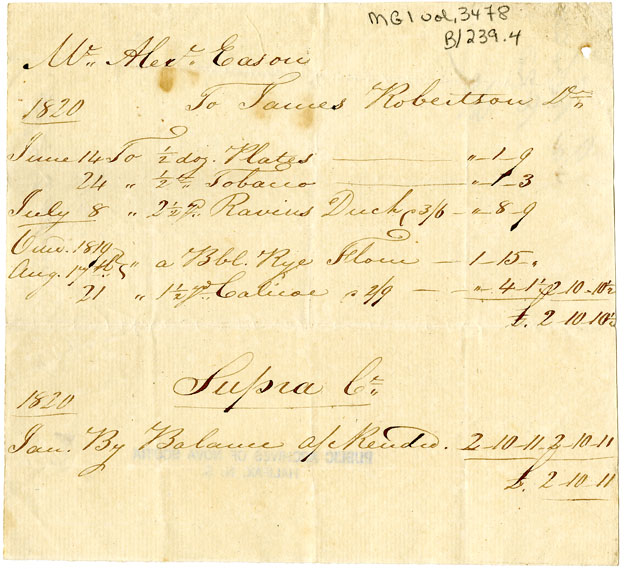 MG1 vol, 3478
B/239.4
Mr. Alexr. Eason
1820 To James Robertson Dr.
June 14 To ½ doz. Plates — " 1 - 9
24 " ½ Tobacco — " 1 - 3
July 8 " 2½ yd. Ravins Duck @ 3/6 — " 8 - 9
Omi. 1819
Aug. 17th } " a Bbl. Rye Flour — 1 - 15 - "
21 " 1½ yd. Calicoe @ 2/9 — — " 4 - 1½ 2 - 10 - 10½
£. 2 - 10 - 10½
Supra Cr.
1820
Jan. By Balance a/c Rendd. 2 - 10 - 11 2 - 10 - 11
£. 2 - 10 - 11
PUBLIC ARCHIVES OF NOVA SCOTIA
HALIFAX, N. S.